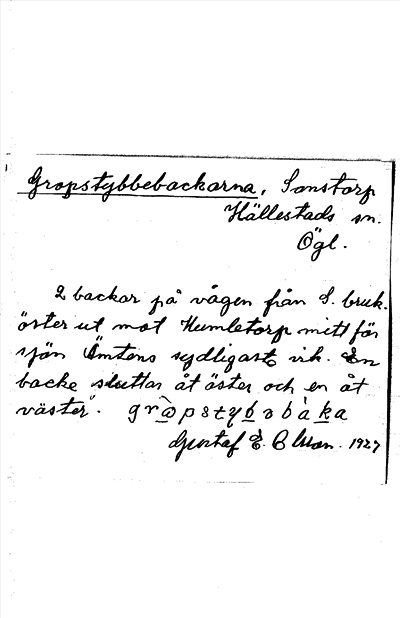 Gropstybbebackarna, Sonstorp
Hällestads sn.
Ögl.
2 backar på vägen från S. bruk
öster ut mot Humletorp mitt för
sjön Ämtens sydligaste vik. En
backe sluttar åt öster och en åt
väster. gròpstyb̲əbàk̲a
Gustaf E. Olsson. 1927